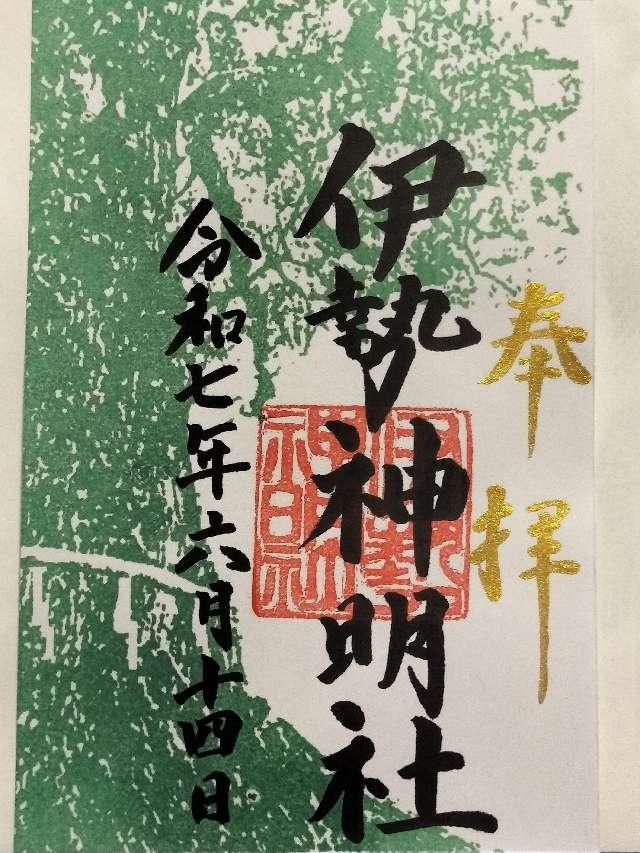 奉拝
伊勢神明社
令和七年六月十四日